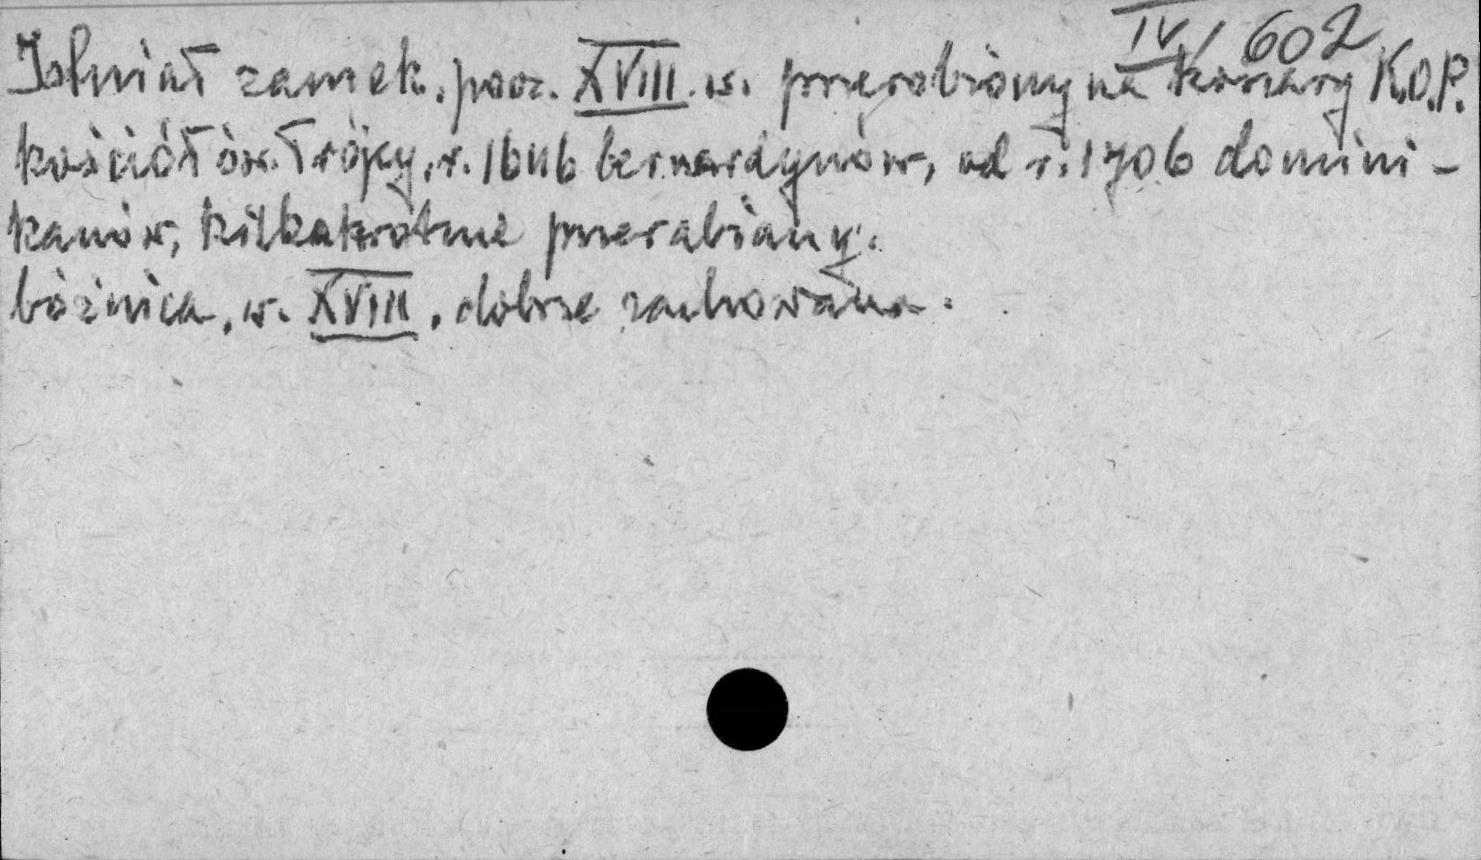 IV/602
Istniał zamek, pocz. XVIII. w. przerobiony na koszary K.O.P.
kościół św. Trójcy, r. 1646 bernardynów, od r. 1706 domini-
kanów, kilkakrotnie przerabiany.
bóżnica, w. XVIII, dobrze zachowana.